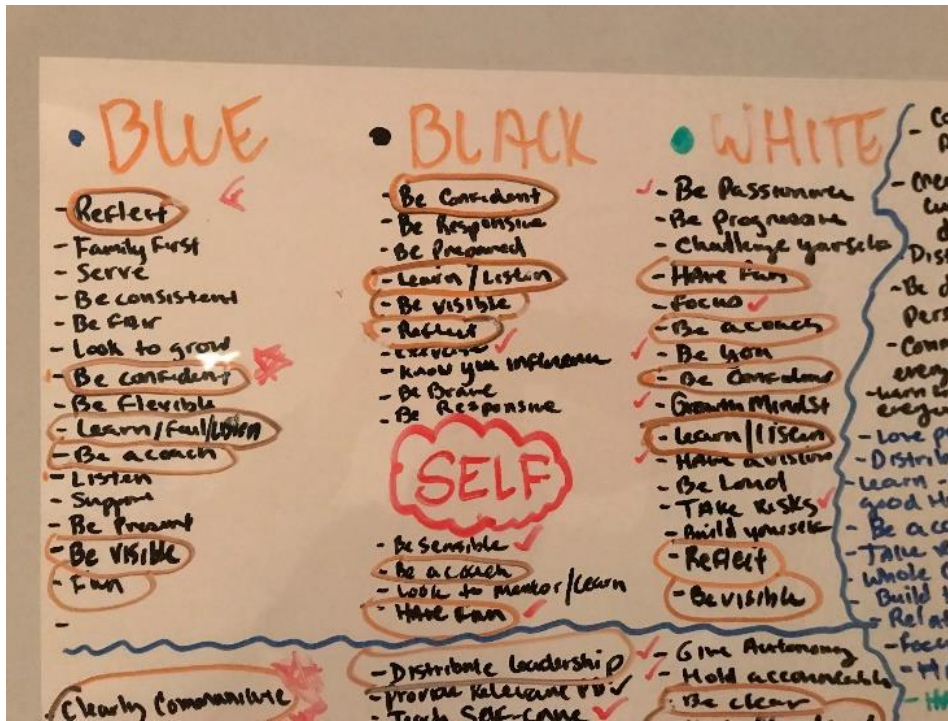 BLUE
- Reflect
- Family First
- Serve
- Be consistent
- Be Fair
- Look to grow
- Be confident
- Be Flexible
- Learn/Fail/Listen
- Be a coach
- Listen
- Support
- Be Present
- Be Visible
- Fun
-
Clearly Communicate
BLACK
- Be Confident
- Be Responsive
- Be Prepared
- Learn/Listen
- Be visible
- Reflect
- Execute
- Know your influence
- Be Brave
- Be Responsive
SELF
- Be sensible
- Be a coach
- Look to Mentor/Learn
- Have Fun
- Distribute Leadership
- Provide Relevant PD
- Teach Self-Care
WHITE
- Be Passionate
- Be Progressive
- Challenge yourself
- Have Fun
- Focus
- Be a coach
- Be You
- Be Confident
- Growth Mindset
- Learn/Listen
- Have a vision
- Be Loud
- Take Risks
- Build yourself
- Reflect
- Be visible
- Give Autonomy
- Hold accountable
- Be clear
- Love
- Distrib
- Learn
good
- Be a
- Take
- Whole
- Build
- Rela
- Focu